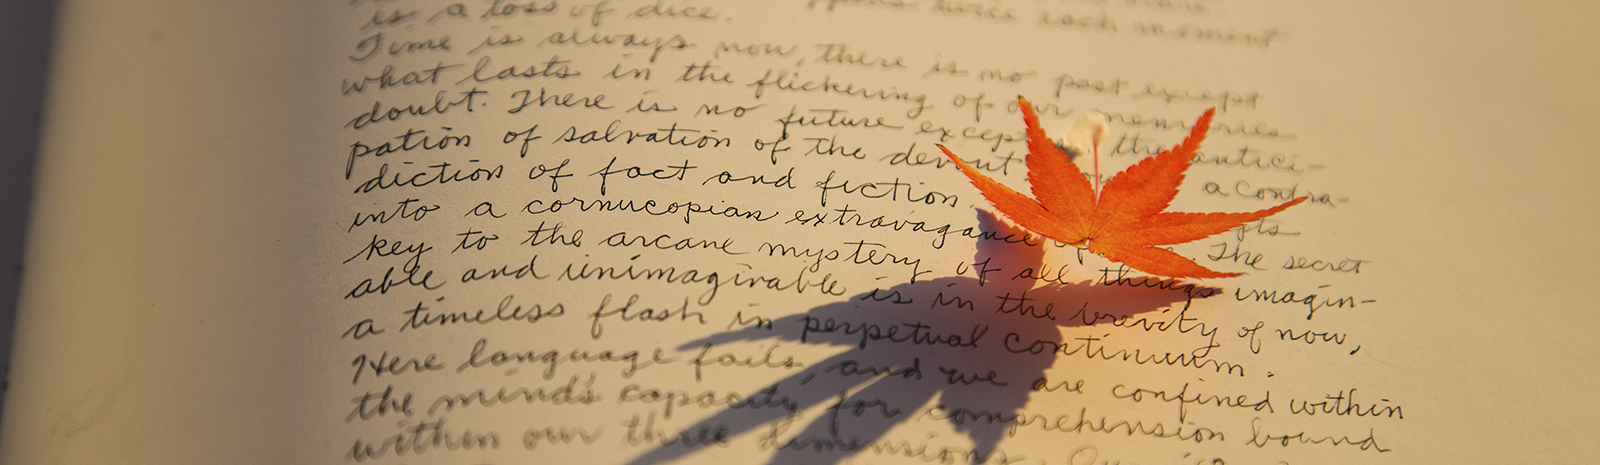 is a toss of dice. happens twice each moment
Time is always now, there is no past except
what lasts in the flickering of our memories
doubt. There is no future except the antici-
pation of salvation of the devout a contra-
diction of fact and fiction.
into a cornucopian extravagance of The secret
key to the arcane mystery of all things imagin-
able and unimaginable is in the brevity of now,
a timeless flash in perpetual continuum.
Here language fails, and we are confined within
the mind's capacity for comprehension bound
within our three dimensions.